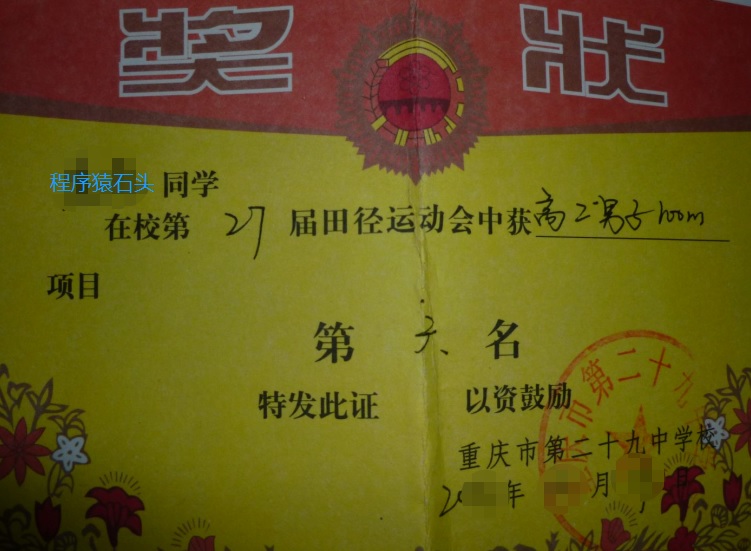 奖状
程序猿石头 同学
在校第 27 届田径运动会中获 高二男子100m
项目
第 六 名
特发此证 以资鼓励
重庆市第二十九中学校
年 月 日